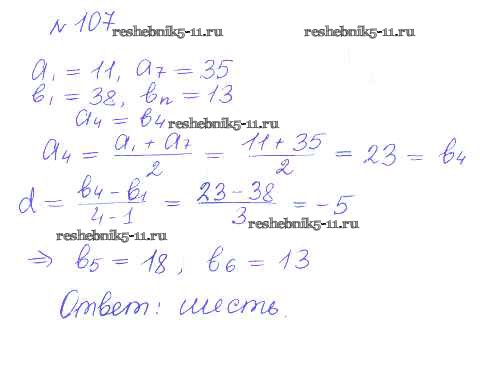 № 107
reshebnik5-11.ru reshebnik5-11.ru
a₁ = 11, a₇ = 35
в₁ = 38, вₙ = 13
a₄ = в₄ reshebnik5-11.ru
a₄ = (a₁ + a₇)/2 = (11 + 35)/2 = 23 = в₄
d = (в₄ - в₁)/(4 - 1) = (23 - 38)/3 = -5
reshebnik5-11.ru reshebnik5-11.ru
⇒ в₅ = 18, в₆ = 13
Ответ: шесть.
reshebnik5-11.ru